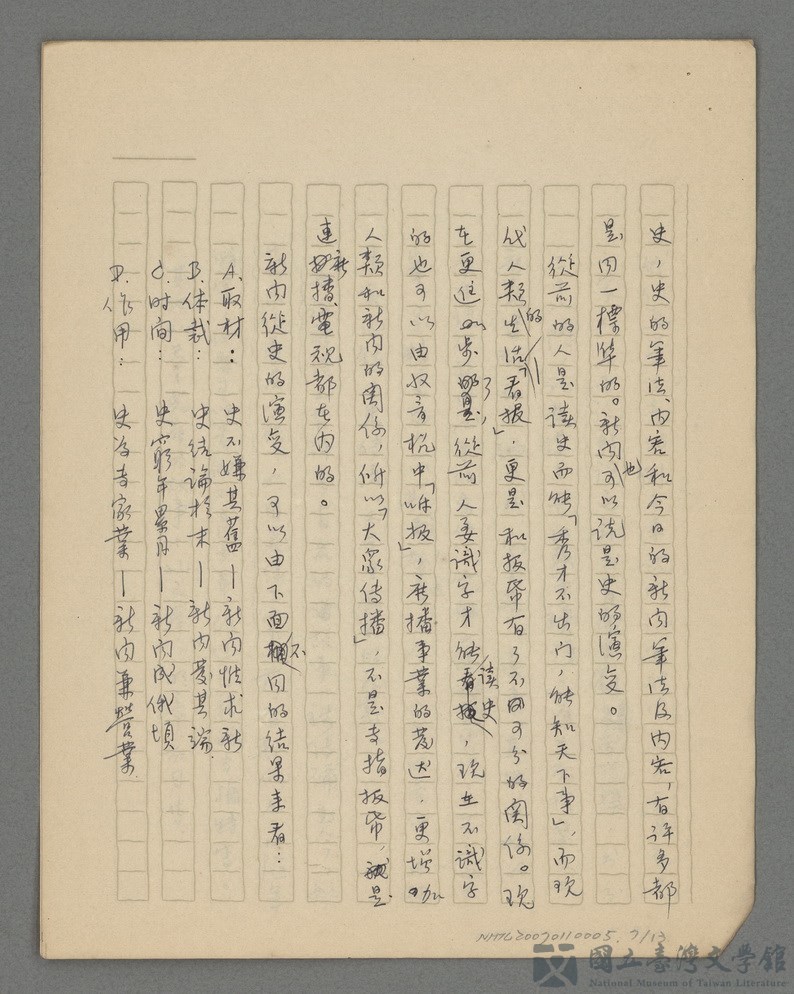 史，史的筆法、內容和今日的新闻筆法及內容，有許多都
是同一標準的。新闻也可以说是史的演变。
從前的人是读史而能「秀才不出门，能知天下事」，而现
代人類的生活「看报」，更是和报纸有了不可分的関係。现
在更进一步了，從前人要識字才能读史，现在不識字
的也可以由收音机中「听报」，新播事業的荒达，更增加
人類和新闻的関係，所以「大衆传播」，不是专指报纸，就是
連新播、電視都在內的。
新闻從史的演变，可以由下面不同的结果来看：
A.取材：史不嫌其舊—新闻惟求新
B.体裁：史结論於末—新闻发其端
C.时间：史窮年累月—新闻成俄頃
D.作用：史为专家業—新闻兼營業
NMTL20070110005. 7/13
國立臺灣文學館
National Museum of Taiwan Literature